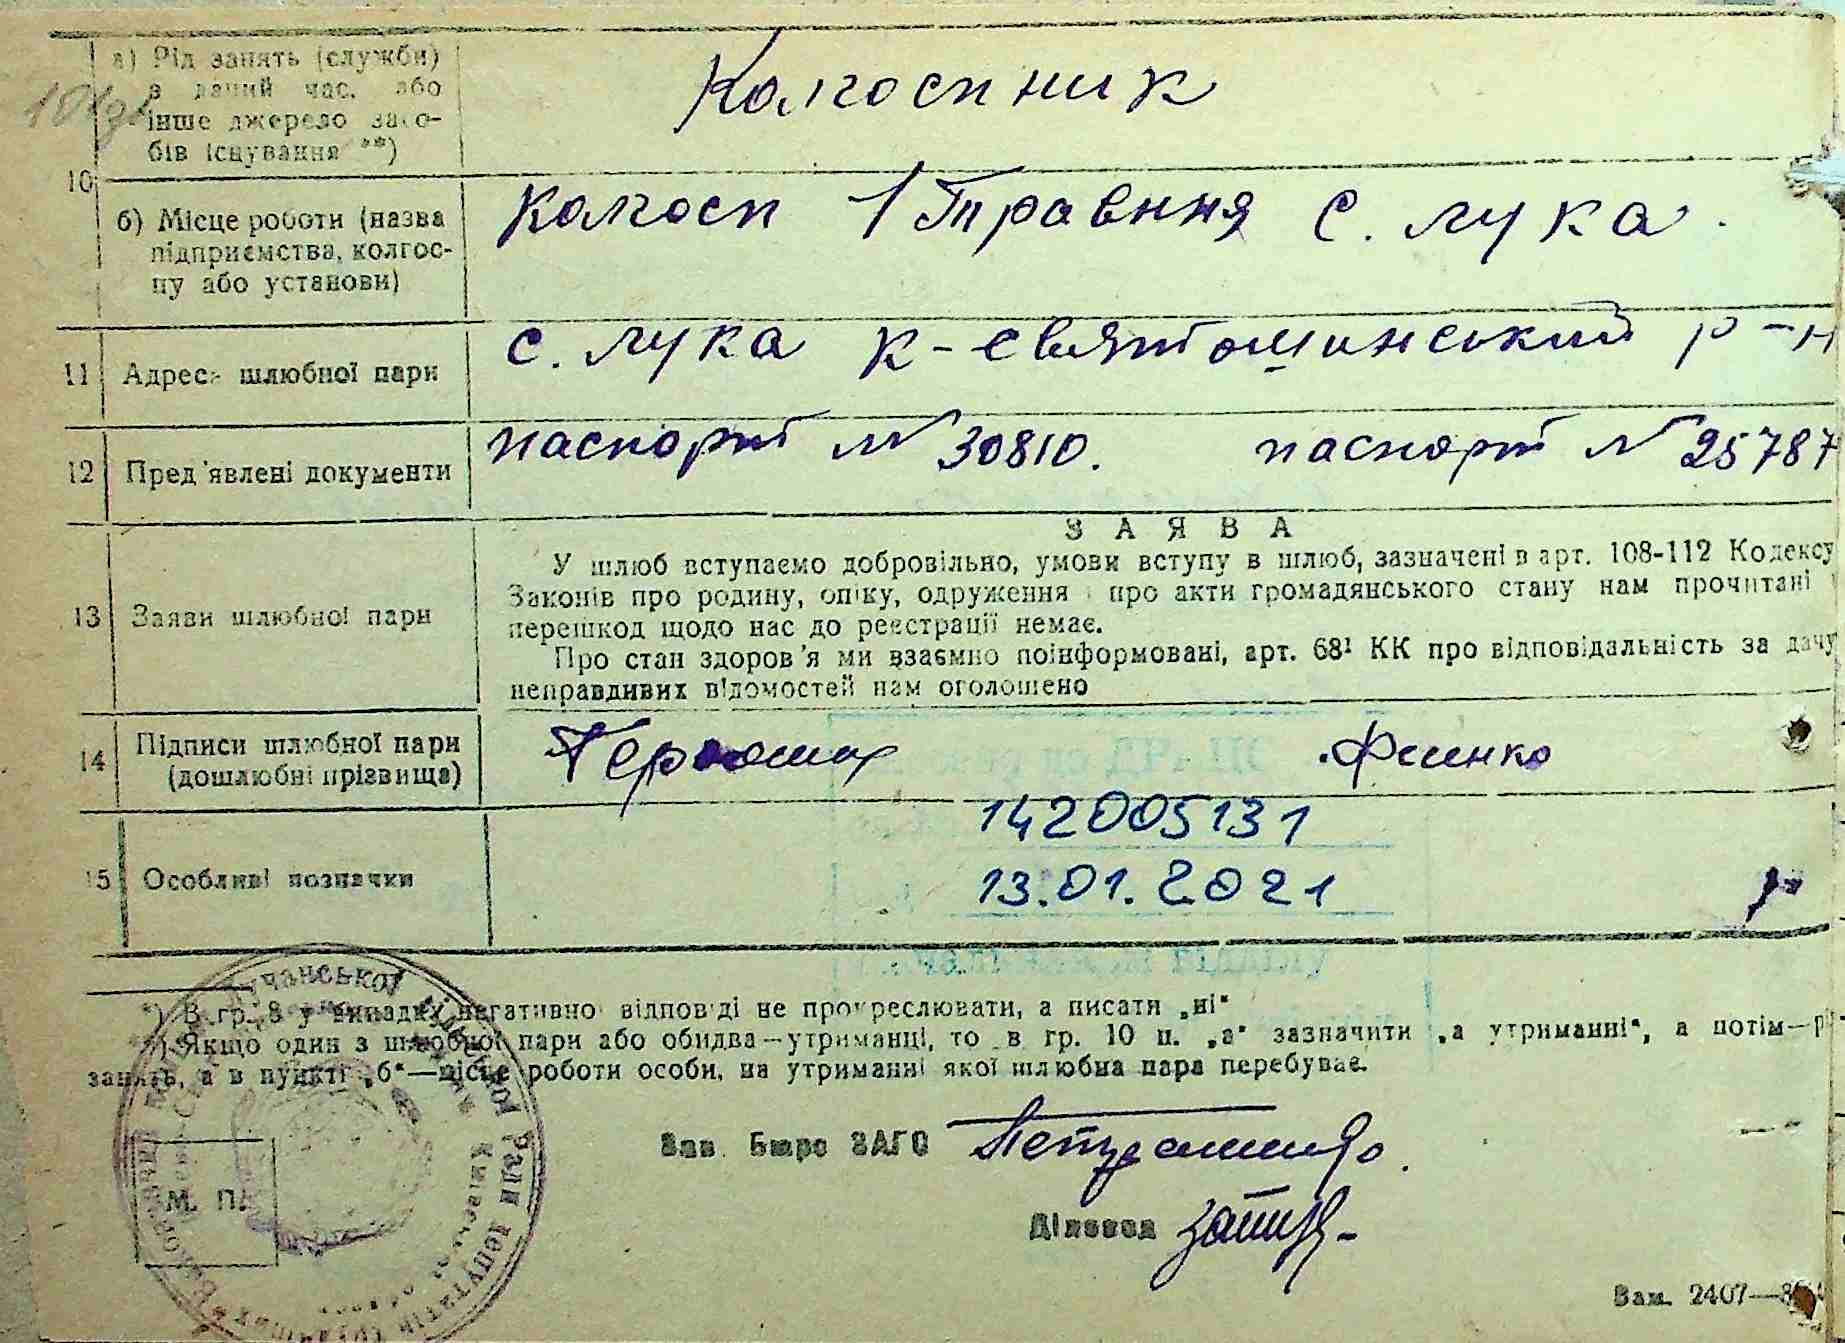 а) Рід занять (служби)
в даний час, або
інше джерело засо-
бів існування **)
Колгоспник
10
б) Місце роботи (назва
підприємства, колгос-
пу або установи)
Колгосп 1 Травння с. Лука.
11 Адреса шлюбної пари
с. Лука К-святошинський р-н
12 Пред'явлені документи
паспорт № 30810. паспорт № 25787
13 Заяви шлюбної пари
ЗАЯВА
У шлюб вступаємо добровільно, умови вступу в шлюб, зазначені в арт. 108-112 Кодексу
Законів про родину, опіку, одруження і про акти громадянського стану нам прочитані
перешкод щодо нас до реєстрації немає.
Про стан здоров'я ми взаємно поінформовані, арт. 68¹ КК про відповідальність за дачу
неправдивих відомостей нам оголошено
14 Підписи шлюбної пари
(дошлюбні прізвища)
15 Особливі позначки
142005131
13.01.2021
*) В гр. 8 у випадку негативної відповіді не прокреслювати, а писати „ні“
**) Якщо один з шлюбної пари або обидва—утриманці, то в гр. 10 п. „а“ зазначити „а утриманні“, а потім—р
занять, а в пункті „б“—місце роботи особи, на утриманні якої шлюбна пара перебуває.
Зав. Бюро ЗАГС
Діловод
М. П.
Зам. 2407—